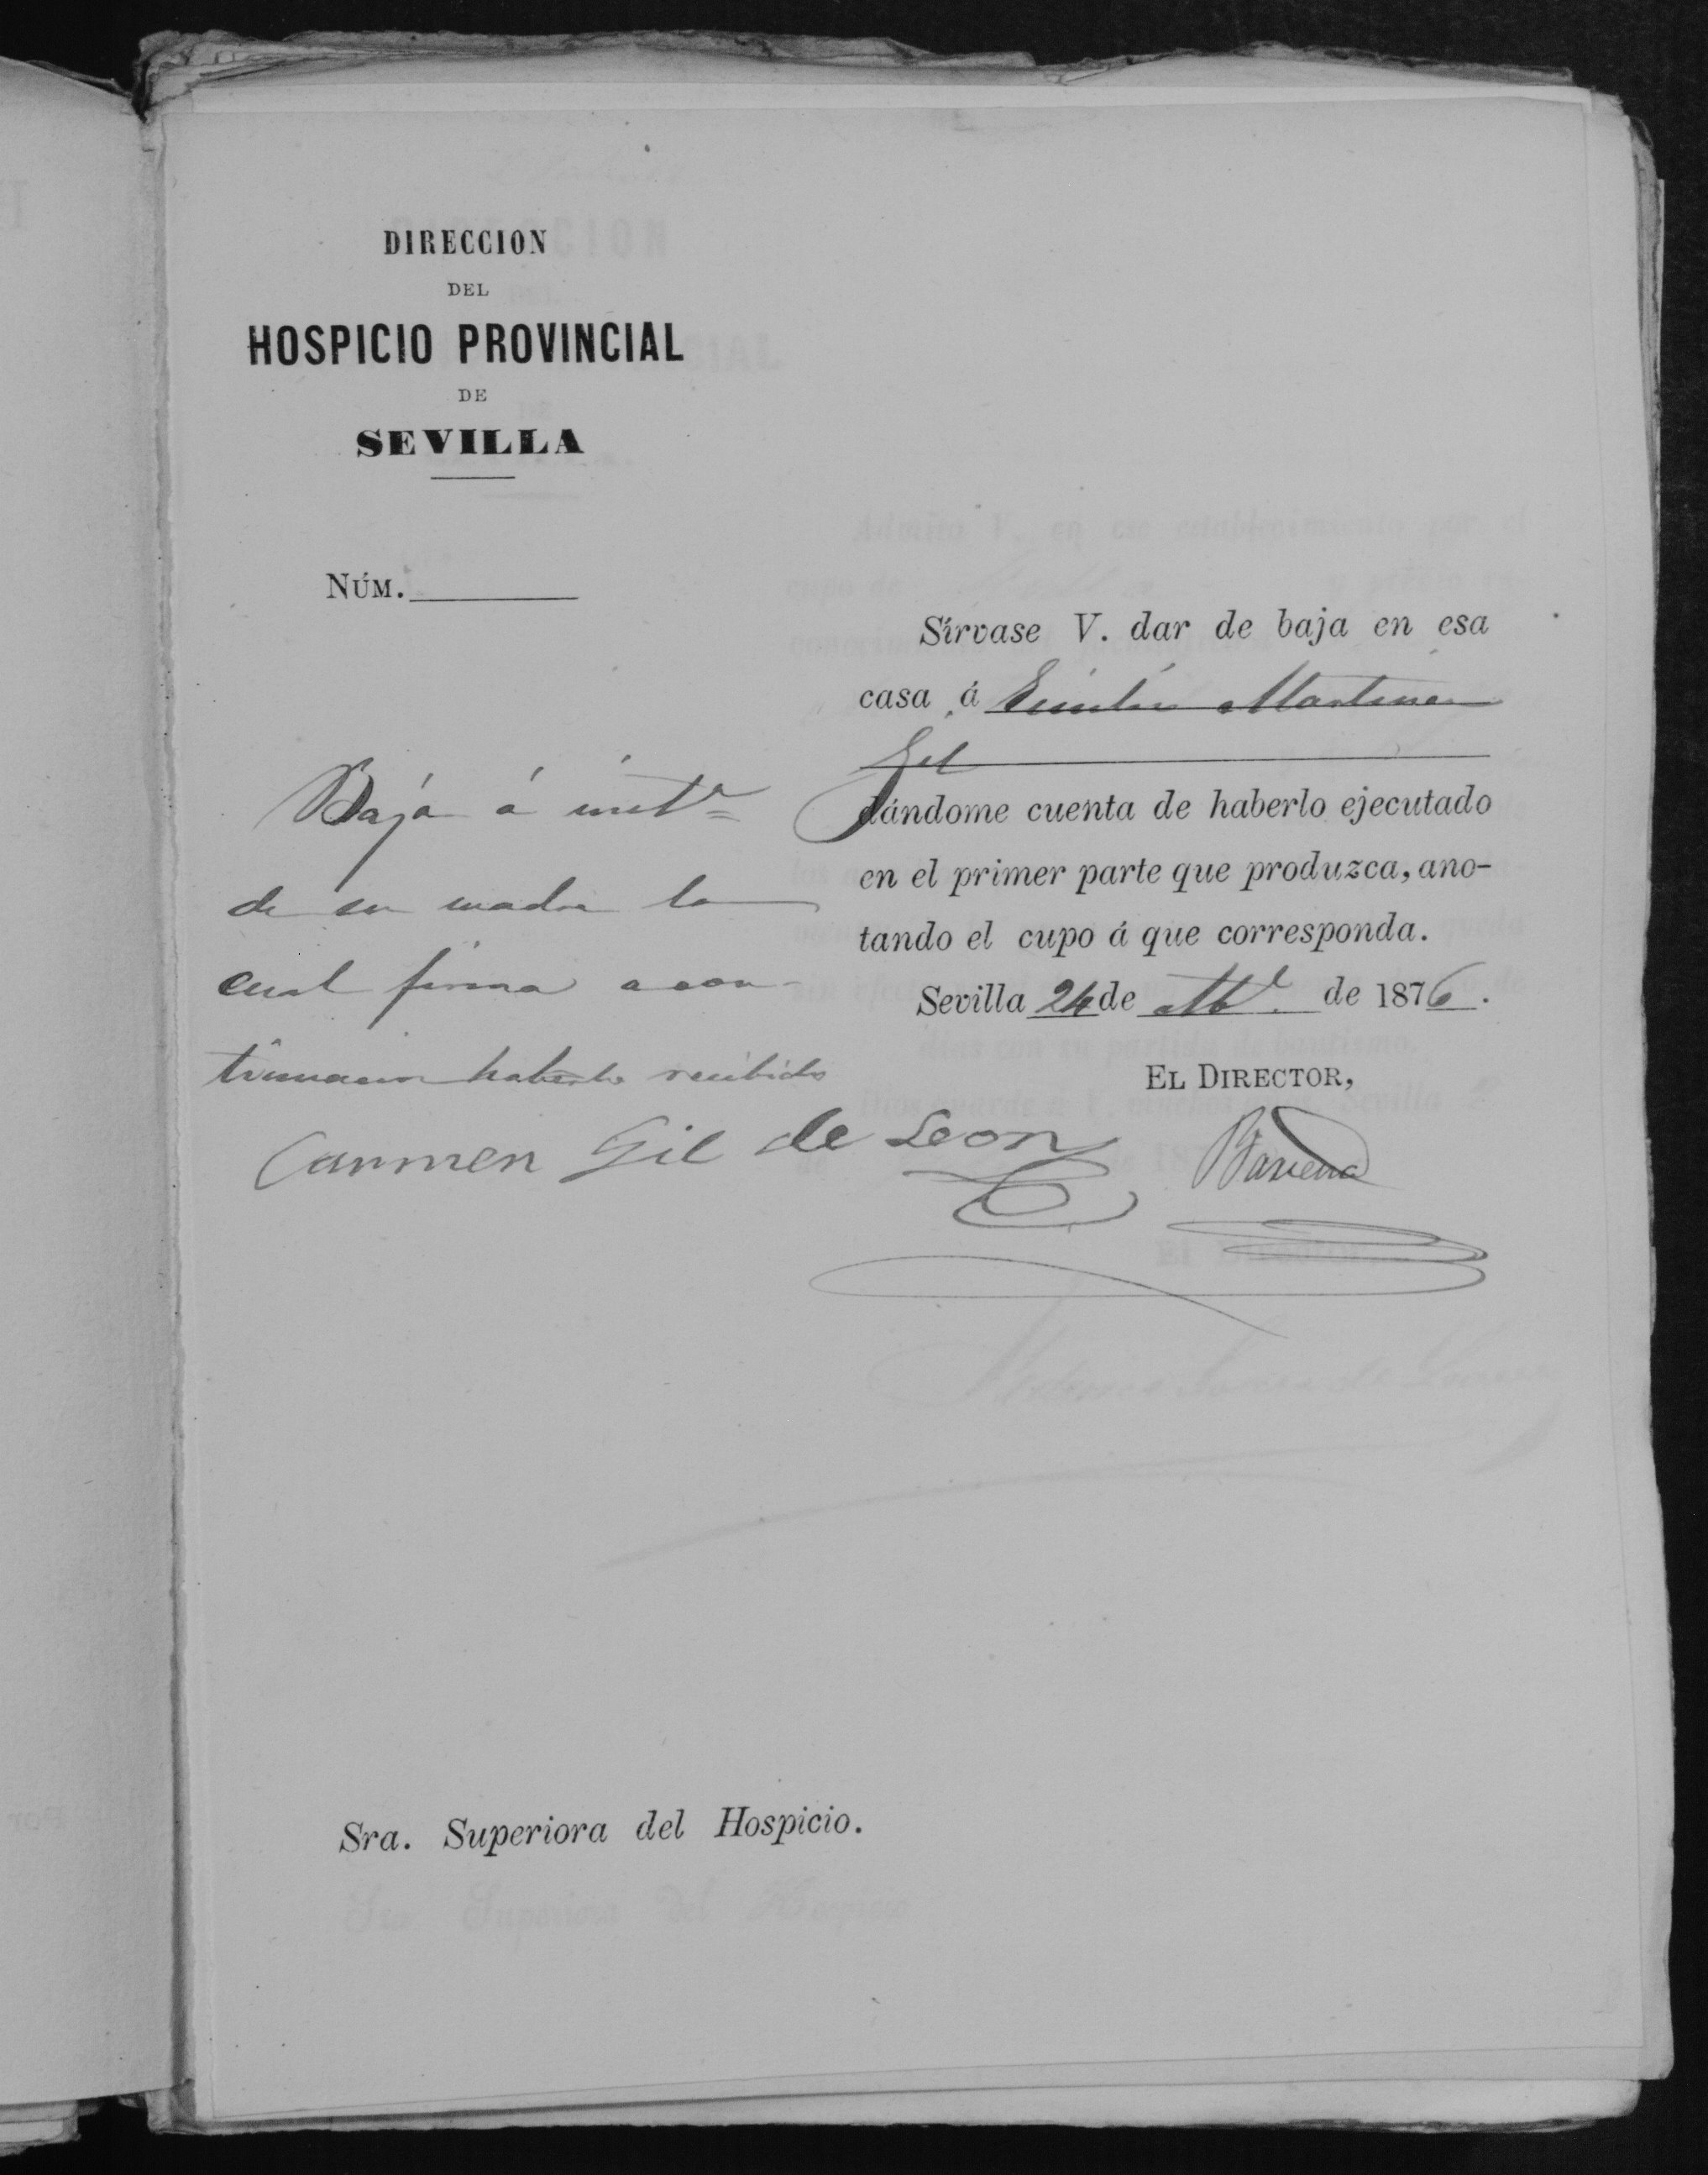 DIRECCION
DEL
HOSPICIO PROVINCIAL
DE
SEVILLA
NÚM.
Sírvase V. dar de baja en esa
casa á Emilio Martinez
Gil
dándome cuenta de haberlo ejecutado
en el primer parte que produzca, ano-
tando el cupo á que corresponda.
Sevilla 24 de de 1876.
EL DIRECTOR,
Barrera
Baja á inst.ª
de su madre la
cual firma a con-
tinuacion haberlo recibido
Carmen Gil de Leon
Sra. Superiora del Hospicio.